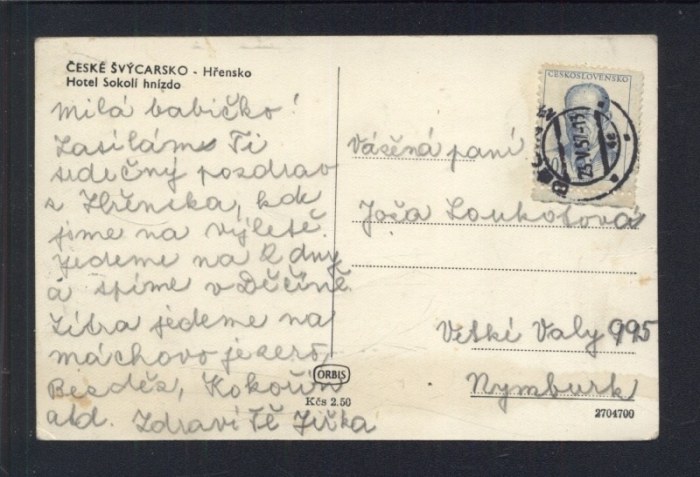 ČESKÉ ŠVÝCARSKO - Hřensko
Hotel Sokolí hnízdo
Milá babičko!
Zasílám Ti
srdečný pozdrav
z Hřenska, kde
jsme na výletě.
Jedeme na 2 dny
a spíme v Děčíně.
Zítra jedeme na
máchovo jezero,
Bezděz, Kokořín
atd. Zdraví Tě Jiřka
ORBIS
Kčs 2.50
ČESKOSLOVENSKO
23.V.57-15
Vážená paní
Joža Loukotová
Velké Valy 995
Nymburk
2704700